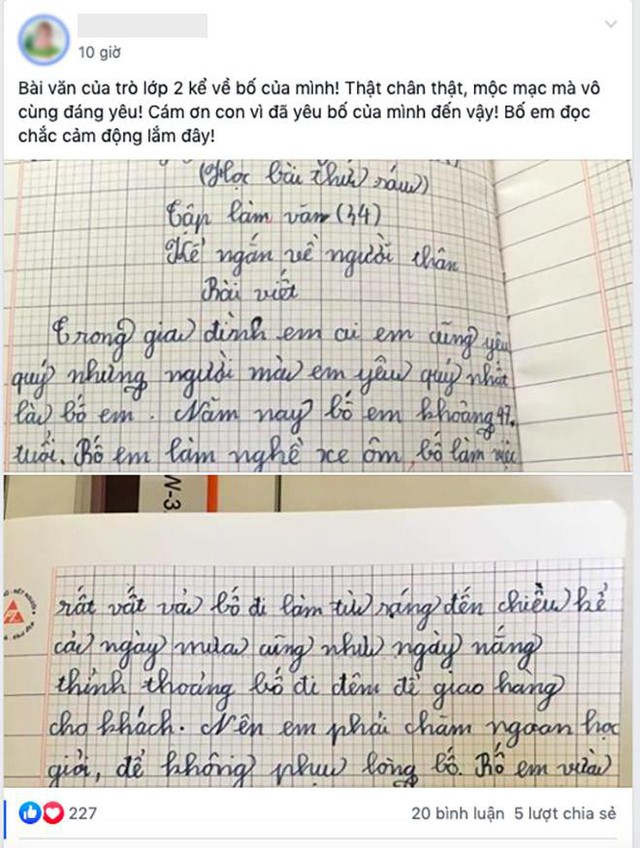 10 giờ
Bài văn của trò lớp 2 kể về bố của mình! Thật chân thật, mộc mạc mà vô
cùng đáng yêu! Cám ơn con vì đã yêu bố của mình đến vậy! Bố em đọc
chắc cảm động lắm đây!
(Học bài thứ sáu)
Tập làm văn (34)
Kể ngắn về người thân
Bài viết
Trong gia đình em ai em cũng yêu
quý nhưng người mà em yêu quý nhất
là bố em. Năm nay bố em khoảng 47
tuổi. Bố em làm nghề xe ôm, bố làm việc
N-3
rất vất vả bố đi làm từ sáng đến chiều kể
cả ngày mưa cũng như ngày nắng
thỉnh thoảng bố đi đêm để giao hàng
cho khách. Nên em phải chăm ngoan học
giỏi, để không phụ lòng bố. Bố em vừa
227
20 bình luận 5 lượt chia sẻ